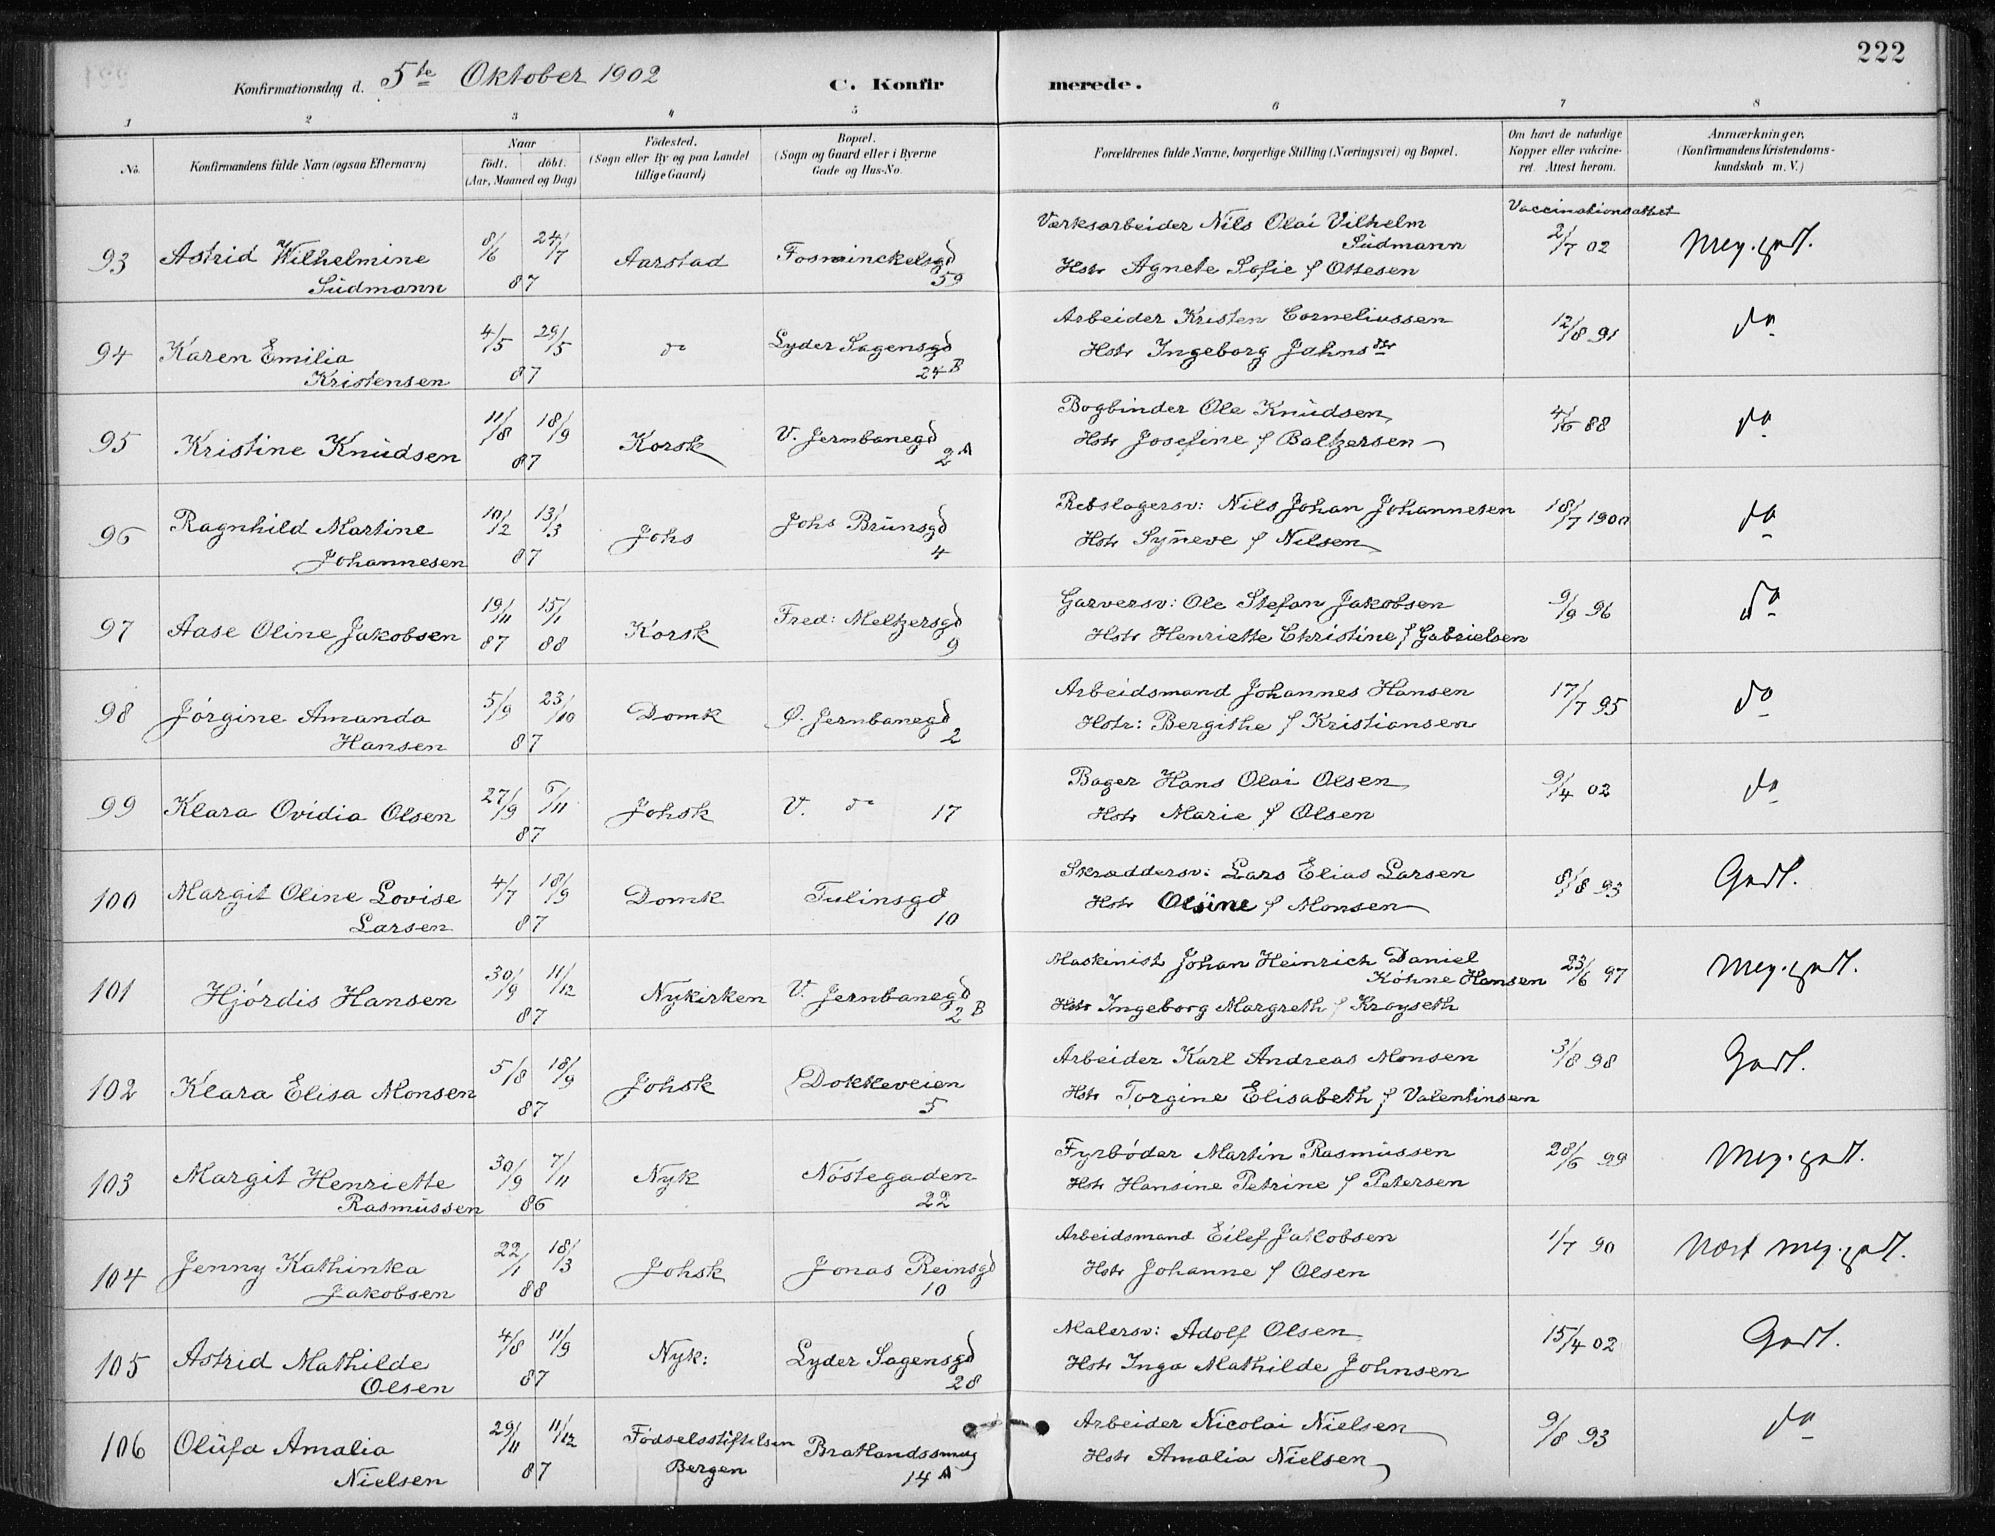 222
Konfirmationsdag d. 5te Oktober 1902 C. Konfirmerede.
1 2 3 4 5 6 7 8
No. Konfirmandens fulde Navn (ogsaa Efternavn) Naar født. døbt. (Aar, Maaned og Dag) Fødested. (Sogn eller By og paa Landet tillige Gaard) Bopæl. (Sogn og Gaard eller i Byerne Gade og Hus-No. Forældrenes fulde Navne, borgerlige Stilling (Næringsvei) og Bopæl. Om havt de naturlige Kopper eller vakcineret. Attest herom. Anmærkninger, (Konfirmandens Kristendomskundskab m. V.)
Vaccinationsattest
93 Astrid Wilhelmine Südmann 8/6 24/7 87 Aarstad Foswinckelsgd 59 Værksarbeider Nils Olai Vilhelm Südmann Hstr Agnete Sofie f Ottesen 2/7 02 Meg. godt.
94 Karen Emilia Kristensen 4/5 29/5 87 do Lyder Sagensgd 24 B Arbeider Kristen Corneliussen Hstr Ingeborg Jahnsdtr 12/8 91 do
95 Kristine Knudsen 11/8 18/9 87 Korsk V. Jernbanegd 2 A Bogbinder Ole Knudsen Hstr Josefine f Baltzersen 4/6 88 do
96 Ragnhild Martine Johannesen 10/12 13/3 87 Johs Johs Brunsgd 4 Rebslagersv: Nils Johan Johannesen Hstr Synneve f Nilsen 18/7 1900 do
97 Aase Oline Jakobsen 19/11 87 15/1 88 Korsk Fred: Meltzersgd 9 Garversv: Ole Stefan Jakobsen Hstr Henriette Christine f Gabrielsen 9/9 96 do
98 Jørgine Amanda Hansen 5/9 23/10 87 Domk Ø. Jernbanegd 2 Arbeidsmand Johannes Hansen Hstr: Bergithe f Kristiansen 17/7 95 do
99 Klara Ovidia Olsen 27/9 6/11 87 Johsk V. do 17 Bager Hans Olai Olsen Hstr Marie f Olsen 9/4 02 do
100 Margit Oline Lovise Larsen 4/7 18/9 87 Domk Tulinsgd 10 Skræddersv: Lars Elias Larsen Hstr Olsine f Monsen 8/8 93 Godt.
101 Hjørdis Hansen 30/9 11/12 87 Nykirken V. Jernbanegd 2 B Maskinist Johan Heinrich Daniel Köhne Hansen Hstr Ingeborg Margreth f Krøyseth 23/6 97 Meg. godt.
102 Klara Elisa Monsen 5/8 18/9 87 Johsk Dokkeveien 5 Arbeider Karl Andreas Monsen Hstr Torgine Elisabeth f Valentinsen 3/8 98 Godt.
103 Margit Henriette Rasmussen 30/9 7/11 86 Nyk Nøstegaden 22 Fyrbøder Martin Rasmussen Hstr Hansine Petrine f Petersen 28/6 99 Meg. godt.
104 Jenny Kathinka Jakobsen 22/1 18/3 88 Johsk Jonas Reinsgd 10 Arbeidsmand Eilef Jakobsen Hstr Johanne f Olsen 1/7 90 Næst meg. godt.
105 Astrid Mathilde Olsen 4/8 11/9 87 Nyk: Lyder Sagensgd 28 Malersv: Adolf Olsen Hstr Inga Mathilde Johnsen 15/4 02 Godt.
106 Olufa Amalia Nielsen 29/11 11/12 87 Fødselsstiftelsen Bergen Bratlandssmug 14 A Arbeider Nicolai Nielsen Hstr Amalia Nielsen 9/8 93 do